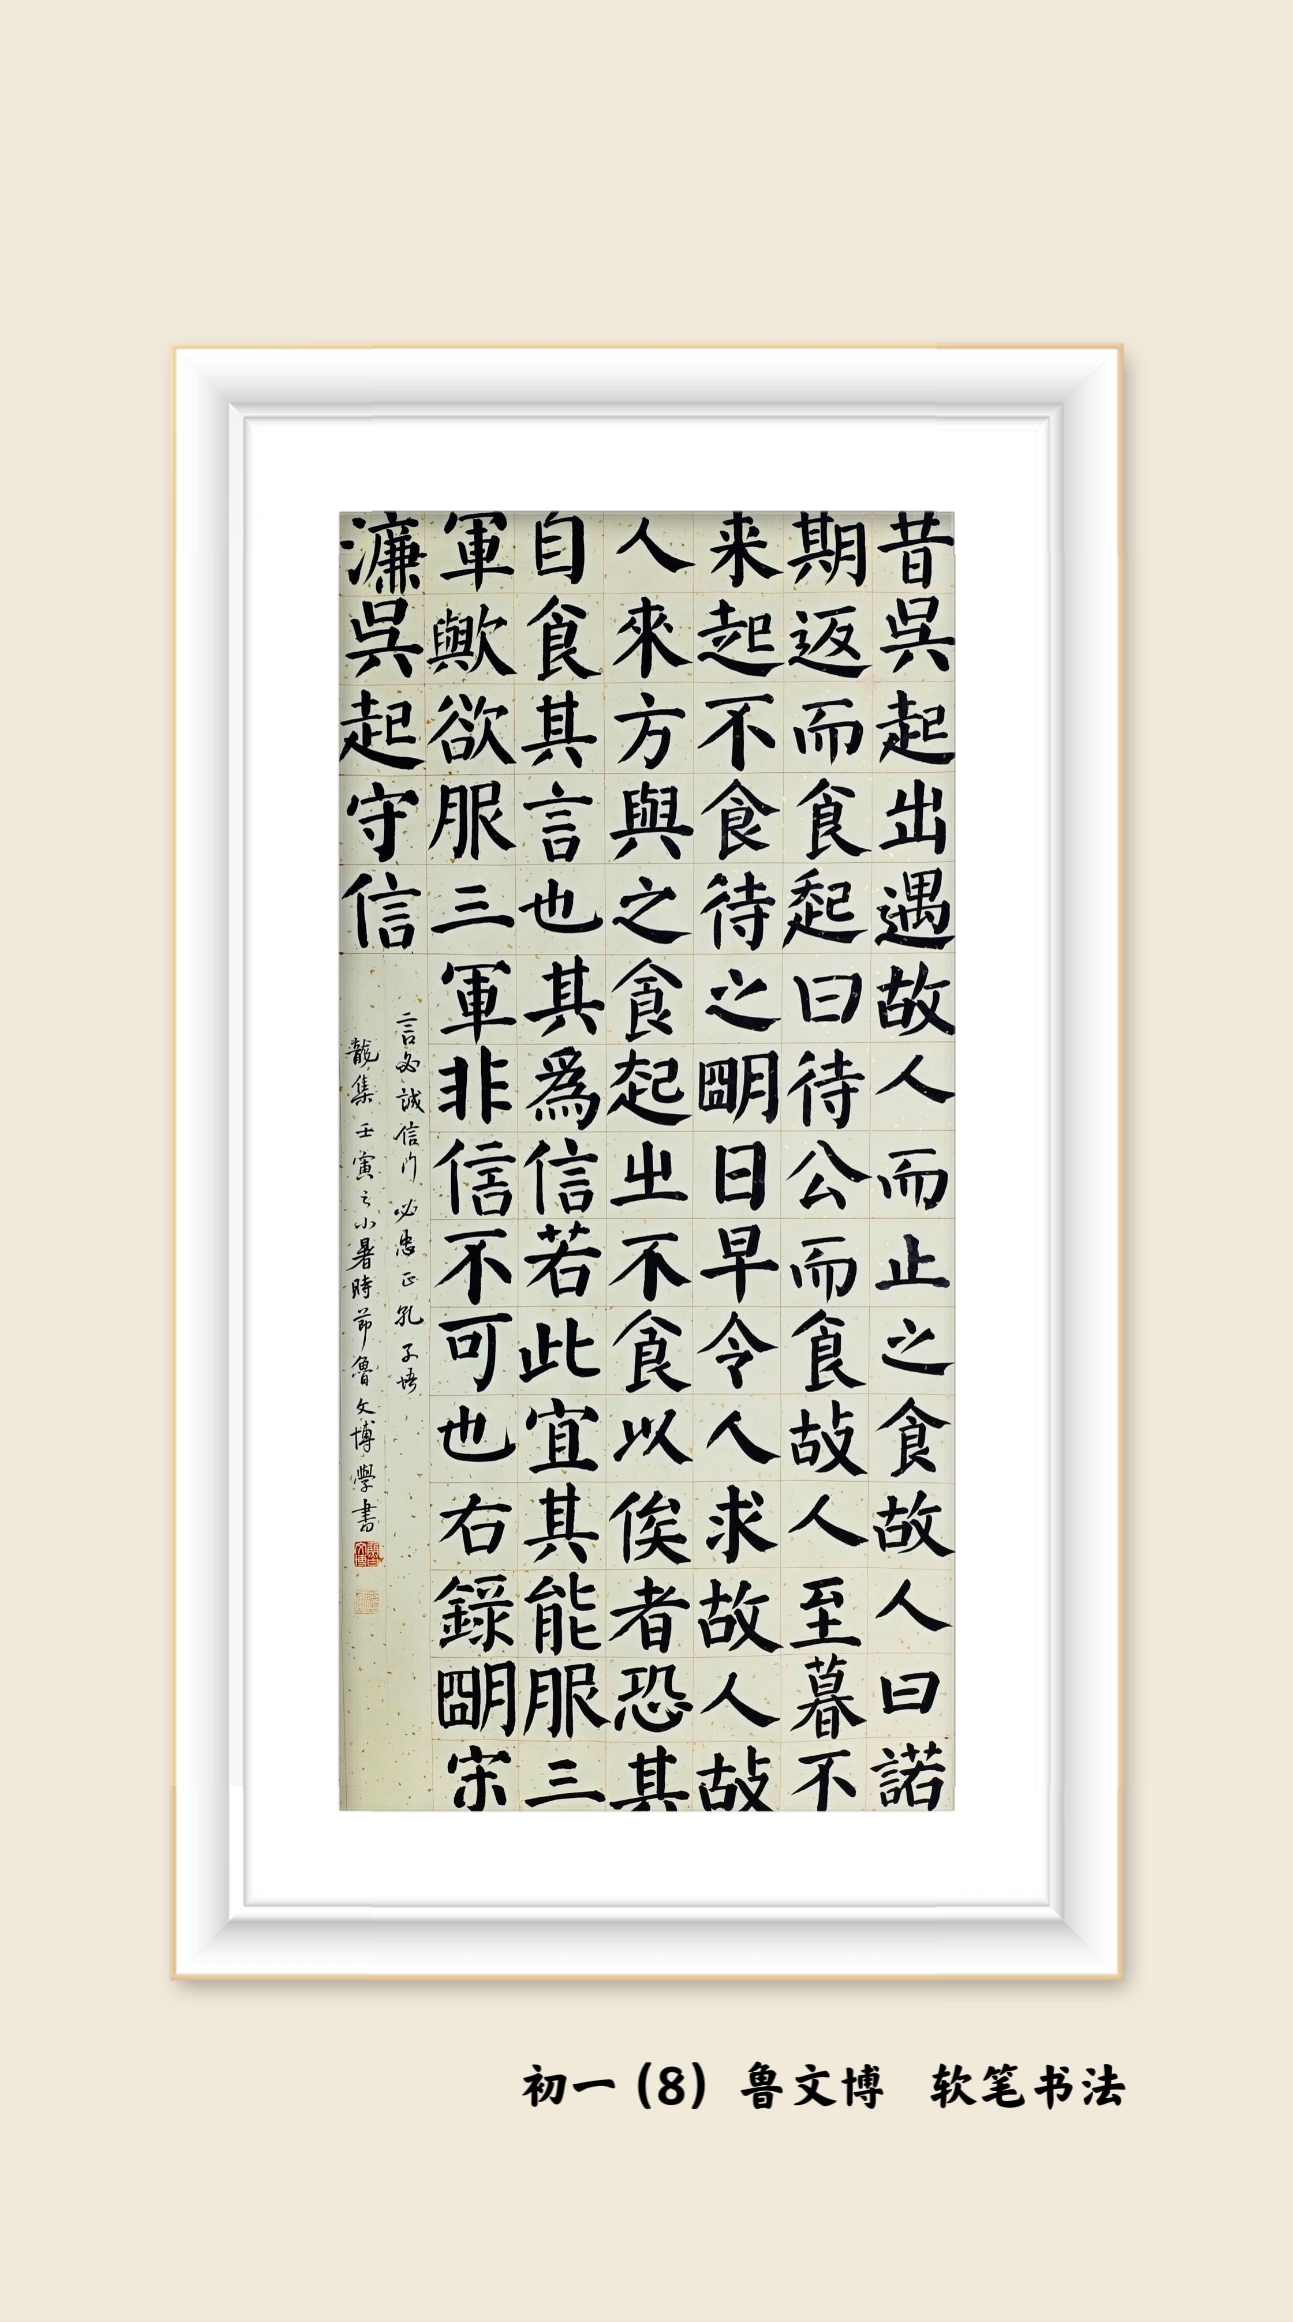 昔吳起出遇故人而止之食故人曰諾
期返而食起曰待公而食故人至暮不
来起不食待之明日早令人求故人故
人來方與之食起出不食以俟者恐其
自食其言也其為信若此宜其能服三
軍歟欲服三軍非信不可也右錄明宋
濂吳起守信
言必誠信行必忠正孔子语
龍集壬寅之小暑時節魯文博學書
初一(8) 鲁文博 软笔书法